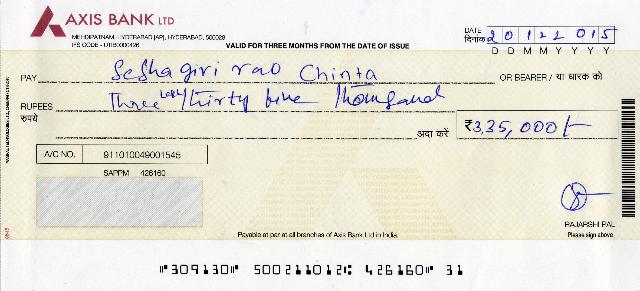 AXIS BANK LTD
MEHDIPATNAM, HYDERABAD [AP], HYDERABAD, 500028
IFS CODE - UTIB0000426
VALID FOR THREE MONTHS FROM THE DATE OF ISSUE
DATE
दिनांक 20122015
D D M M Y Y Y Y
PAY Seshagiri rao Chinta OR BEARER / या धारक को
RUPEES Three Lakh Thirty five Thousand
रुपये
अदा करें ₹3,35,000/-
A/C NO. 911010049001545
SAPPM 426160
RAJARSHI PAL
Payable at par at all branches of Axis Bank Ltd in India.
Please sign above
"309130" 500211012: 426160" 31